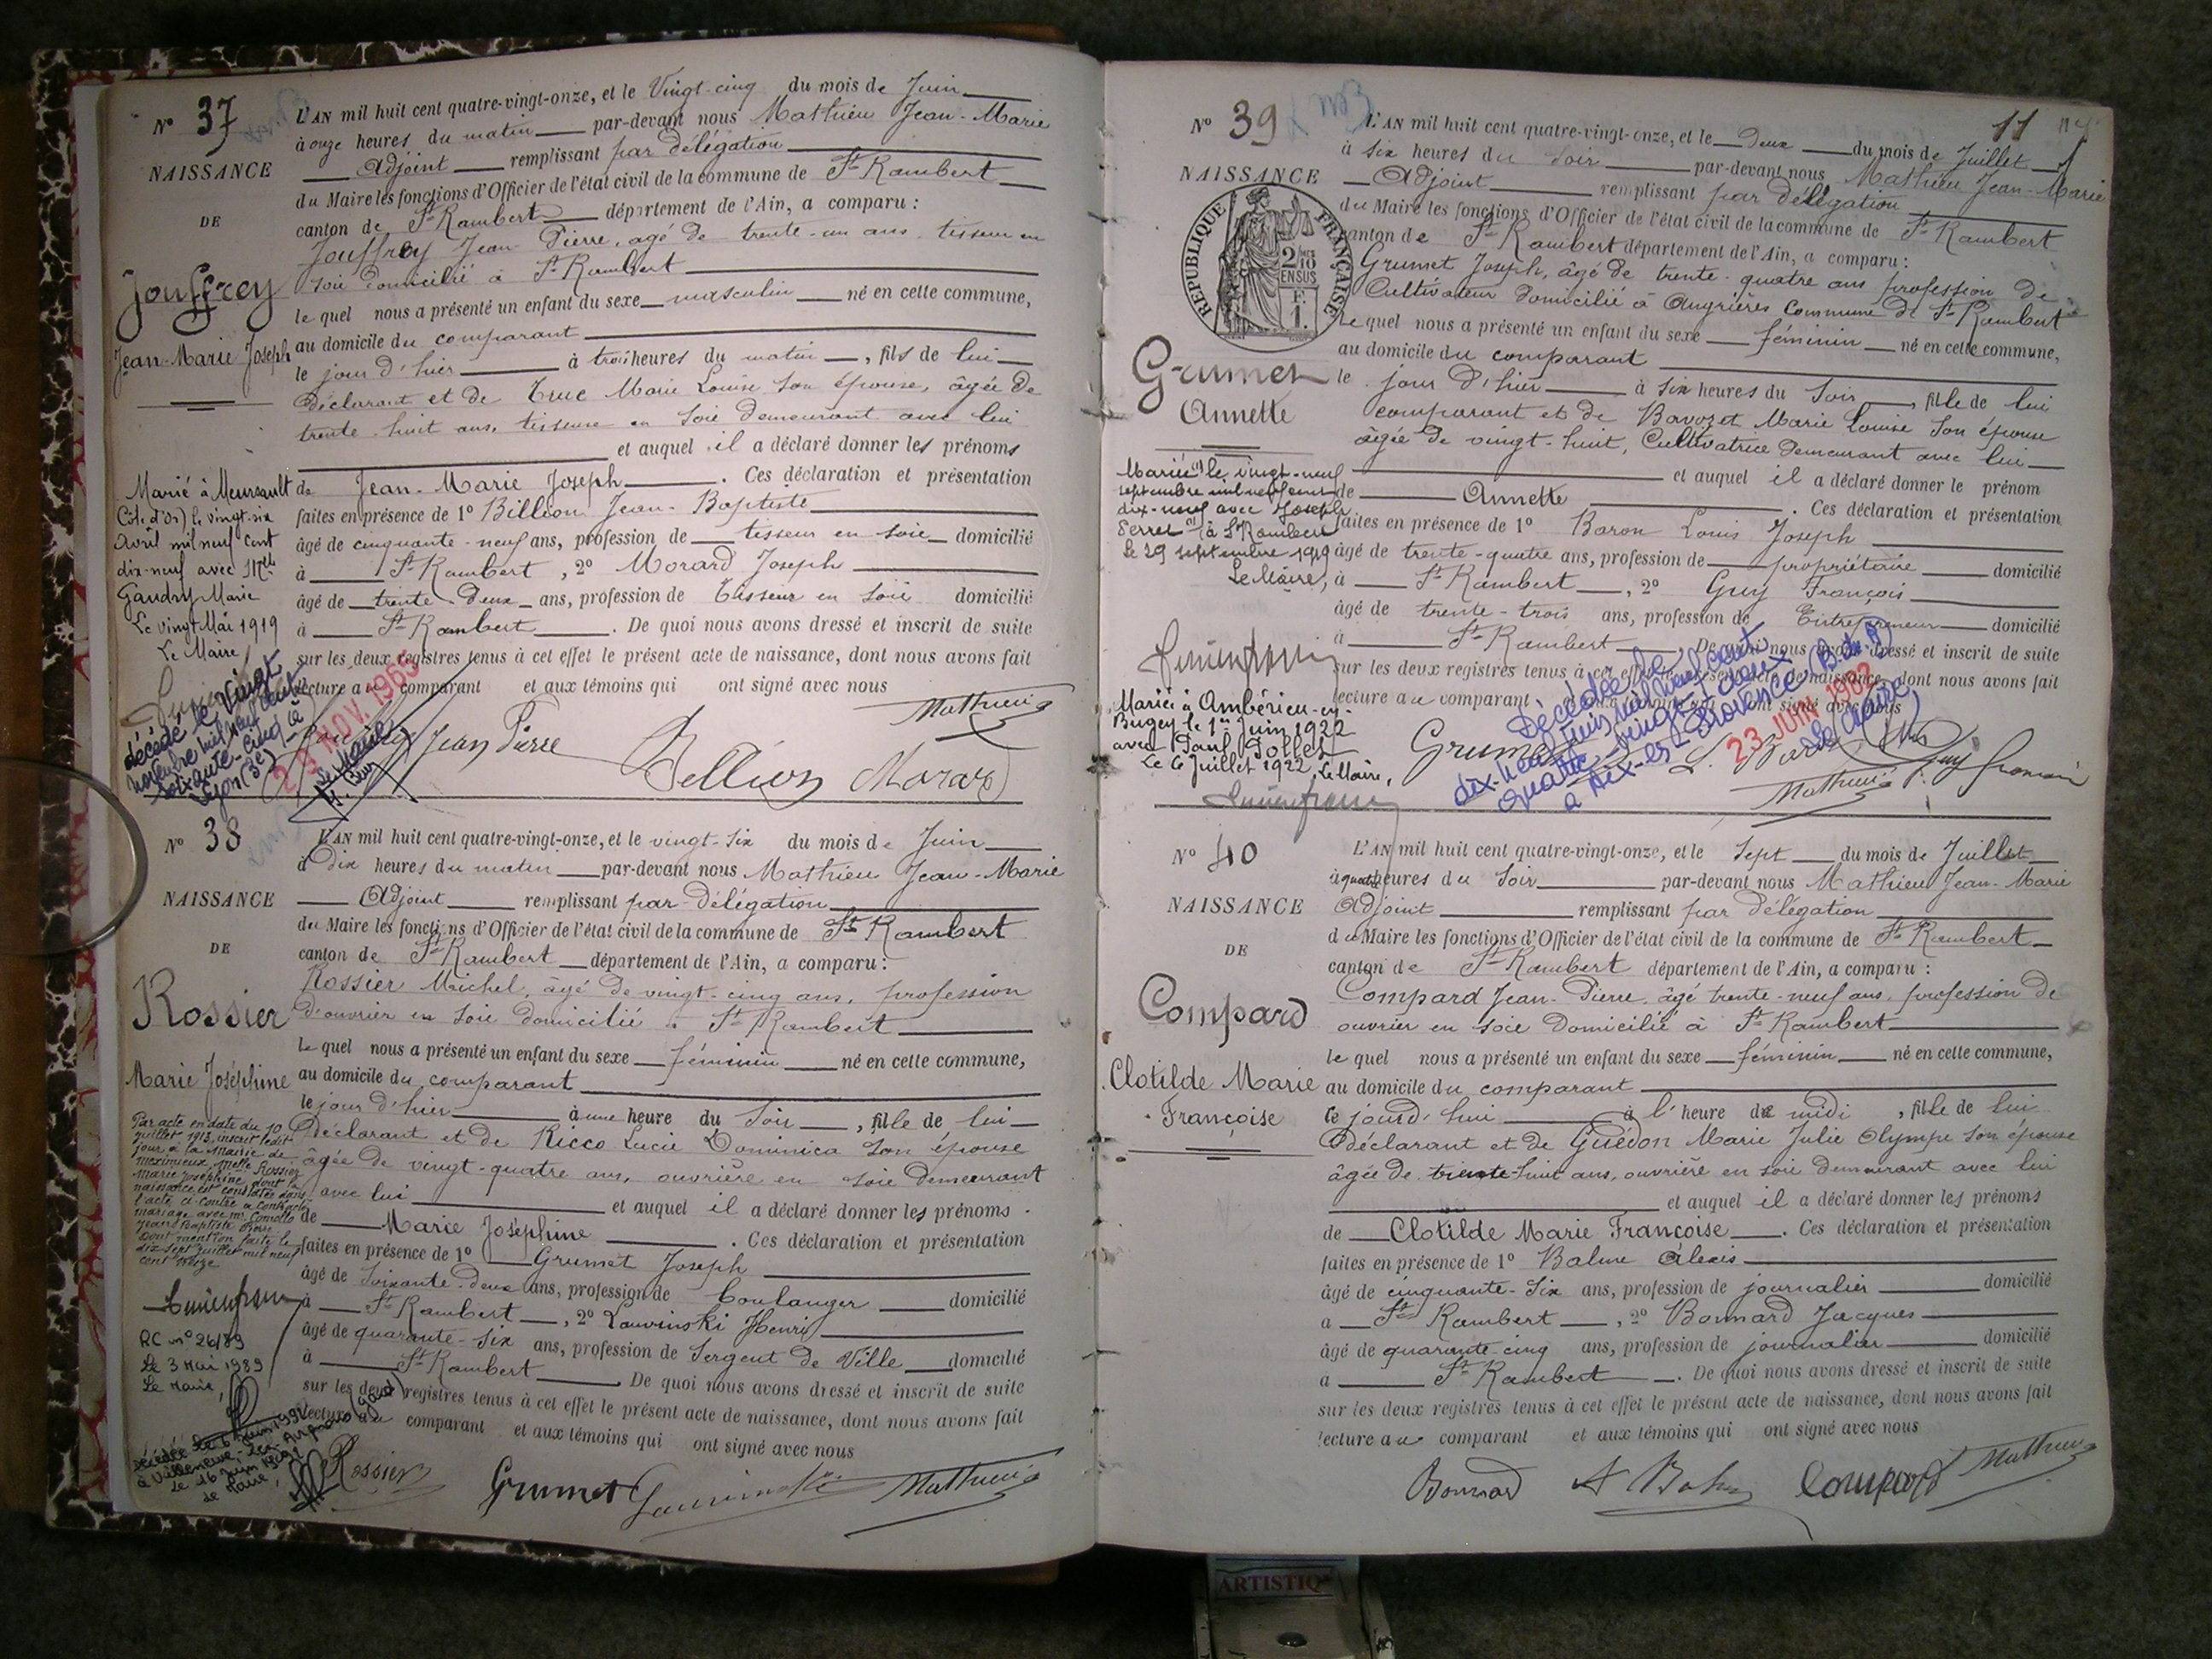 N° 37
NAISSANCE
DE
Jouffrey
Jean-Marie Joseph
L'AN mil huit cent quatre-vingt-onze, et le Vingt-cinq du mois de Juin
à onze heures du matin par-devant nous Mathieu Jean-Marie
Adjoint remplissant par délégation
du Maire les fonctions d'Officier de l'état civil de la commune de St Rambert
canton de St Rambert département de l'Ain, a comparu :
Jouffrey Jean Pierre, agé de trente-un ans tisseur en
soie domicilié à St Rambert
le quel nous a présenté un enfant du sexe masculin né en cette commune,
au domicile du comparant
le jour d'hier à trois heures du matin, fils de lui
déclarant et de Truc Marie Louise son épouse, âgée de
trente-huit ans, tisseuse en soie demeurant avec lui
et auquel il a déclaré donner les prénoms
de Jean-Marie Joseph. Ces déclaration et présentation
faites en présence de 1° Billion Jean-Baptiste
âgé de cinquante-neuf ans, profession de tisseur en soie domicilié
à St Rambert, 2° Morard Joseph
âgé de trente-deux ans, profession de Tisseur en soie domicilié
à St Rambert. De quoi nous avons dressé et inscrit de suite
sur les deux registres tenus à cet effet le présent acte de naissance, dont nous avons fait
lecture au comparant et aux témoins qui ont signé avec nous
Marié à Meursault
(Côte d'Or) le vingt-six
Avril mil neuf cent
dix-neuf avec Melle
Gaudry Marie
Le vingt Mai 1919
Le Maire
décédé le vingt
novembre mil neuf cent
soixante-cinq à
Lyon (3e)
29 NOV. 1965
Le Maire
Jean Pierre
Billion Morard
Mathieu
N° 38
NAISSANCE
DE
Rossier
Marie Joséphine
L'AN mil huit cent quatre-vingt-onze, et le vingt-six du mois de Juin
à Dix heures du matin par-devant nous Mathieu Jean-Marie
Adjoint remplissant par délégation
du Maire les fonctions d'Officier de l'état civil de la commune de St Rambert
canton de St Rambert département de l'Ain, a comparu :
Rossier Michel, âgé de vingt-cinq ans, profession
d'ouvrier en soie domicilié à St Rambert
le quel nous a présenté un enfant du sexe féminin né en cette commune,
au domicile du comparant
le jour d'hier à une heure du soir, fille de lui
déclarant et de Ricco Lucie Dominica son épouse
âgée de vingt-quatre ans, ouvrière en soie demeurant
avec lui et auquel il a déclaré donner les prénoms
de Marie Joséphine. Ces déclaration et présentation
faites en présence de 1° Grumet Joseph
âgé de soixante-deux ans, profession de boulanger domicilié
à St Rambert, 2° Lauvinski Henri
âgé de quarante-six ans, profession de Sergent de Ville domicilié
à St Rambert. De quoi nous avons dressé et inscrit de suite
sur les deux registres tenus à cet effet le présent acte de naissance, dont nous avons fait
lecture au comparant et aux témoins qui ont signé avec nous
Par acte en date du 10
juillet 1913, inscrit ledit
jour à la mairie de
meximieux, Melle Rossier
Marie Joséphine dont la
naissance est constatée dans
l'acte ci-contre a contracté
mariage avec mr Comollo
Jean Baptiste
Dont mention faite le
dix sept juillet mil neuf
cent treize
RC n° 26/89
Le 3 Mai 1989
Le Maire,
Décédée le 6 Juin 1991
à Villeneuve-Les-Avignon (Gard)
Le 16 Juin 1991
Le Maire,
Rossier
Grumet
Mathieu
N° 39
NAISSANCE
RÉPUBLIQUE FRANÇAISE
2/10 EN SUS
F. 1.
Grumet
Annette
11
L'AN mil huit cent quatre-vingt-onze, et le Deux du mois de Juillet
à six heures du soir par-devant nous Mathieu Jean-Marie
Adjoint remplissant par délégation
du Maire les fonctions d'Officier de l'état civil de la commune de St Rambert
canton de St Rambert département de l'Ain, a comparu :
Grumet Joseph, âgé de trente-quatre ans profession de
Cultivateur domicilié à Angrières Commune de St Rambert
le quel nous a présenté un enfant du sexe féminin né en cette commune,
au domicile du comparant
le jour d'hier à six heures du soir, fille de lui
comparant et de Bavozet Marie Louise son épouse
âgée de vingt-huit, Cultivatrice demeurant avec lui
et auquel il a déclaré donner le prénom
de Annette. Ces déclaration et présentation
faites en présence de 1° Baron Louis Joseph
âgé de trente-quatre ans, profession de propriétaire domicilié
à St Rambert, 2° Guy François
âgé de trente-trois ans, profession de Entrepreneur domicilié
à St Rambert. De quoi nous avons dressé et inscrit de suite
sur les deux registres tenus à cet effet le présent acte de naissance, dont nous avons fait
lecture au comparant et aux témoins qui ont signé avec nous
Mariée le vingt-neuf
septembre mil neuf cent
dix-neuf avec Joseph
Perret à St Rambert
Le 29 septembre 1919
Le Maire,
Mariée à Ambérieu-en-
Bugey le 1er Juin 1922
avec Paul Pollet
Le 6 Juillet 1922, Le Maire,
Décédée le
dix-neuf juin mil neuf cent
quatre-vingt-deux
à Aix-les-Provence (B. du R)
23 JUIN 1982
Le Maire
Grumet
L. Baron
Guy François
Mathieu
N° 40
NAISSANCE
DE
Compard
Clotilde Marie
Françoise
L'AN mil huit cent quatre-vingt-onze, et le sept du mois de Juillet
à quatre heures du soir par-devant nous Mathieu Jean-Marie
Adjoint remplissant par délégation
du Maire les fonctions d'Officier de l'état civil de la commune de St Rambert
canton de St Rambert département de l'Ain, a comparu :
Compard Jean-Pierre, âgé trente-neuf ans, profession de
ouvrier en soie domicilié à St Rambert
le quel nous a présenté un enfant du sexe féminin né en cette commune,
au domicile du comparant
le jourd'hui à l'heure de midi, fille de lui
déclarant et de Guédon Marie Julie Olympe son épouse
âgée de trente-huit ans, ouvrière en soie demeurant avec lui
et auquel il a déclaré donner les prénoms
de Clotilde Marie Françoise. Ces déclaration et présentation
faites en présence de 1° Balme Alexis
âgé de cinquante-six ans, profession de journalier domicilié
à St Rambert, 2° Bonnard Jacques
âgé de quarante-cinq ans, profession de journalier domicilié
à St Rambert. De quoi nous avons dressé et inscrit de suite
sur les deux registres tenus à cet effet le présent acte de naissance, dont nous avons fait
lecture au comparant et aux témoins qui ont signé avec nous
Bonnard
Compard
Mathieu
ARTISTIQ